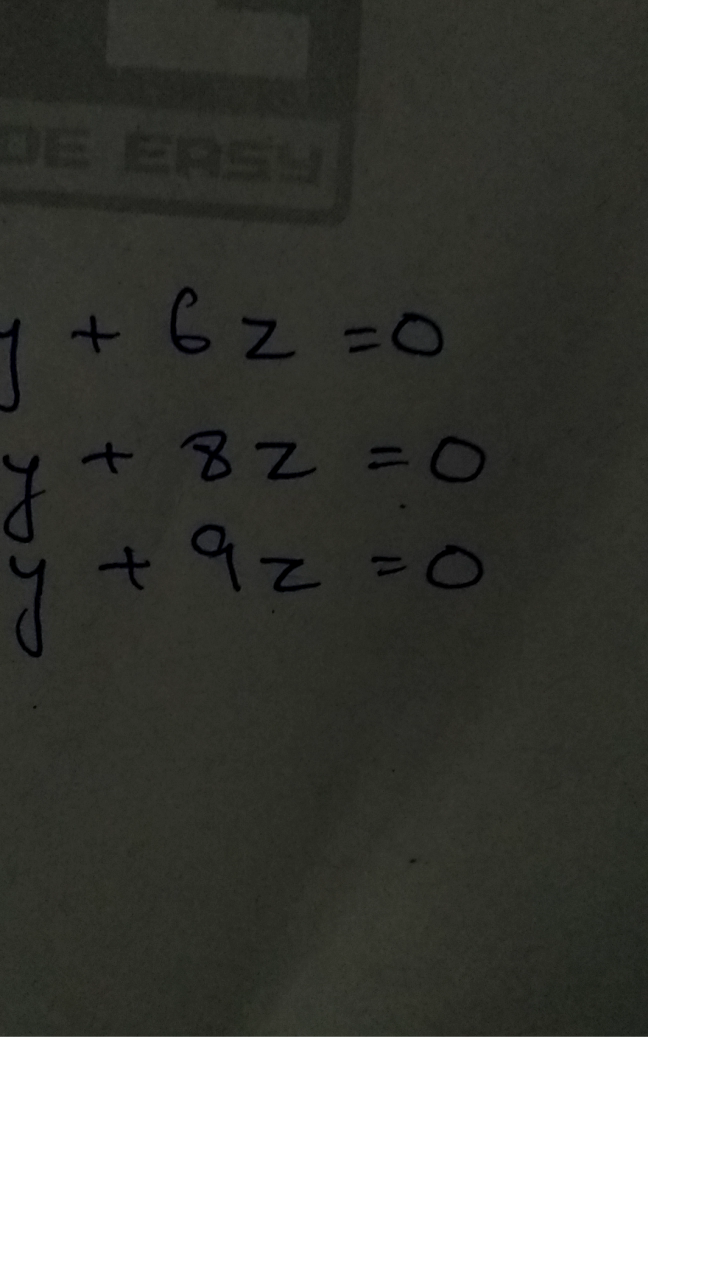 DE EASY
y + 6z = 0
y + 8z = 0
y + 9z = 0